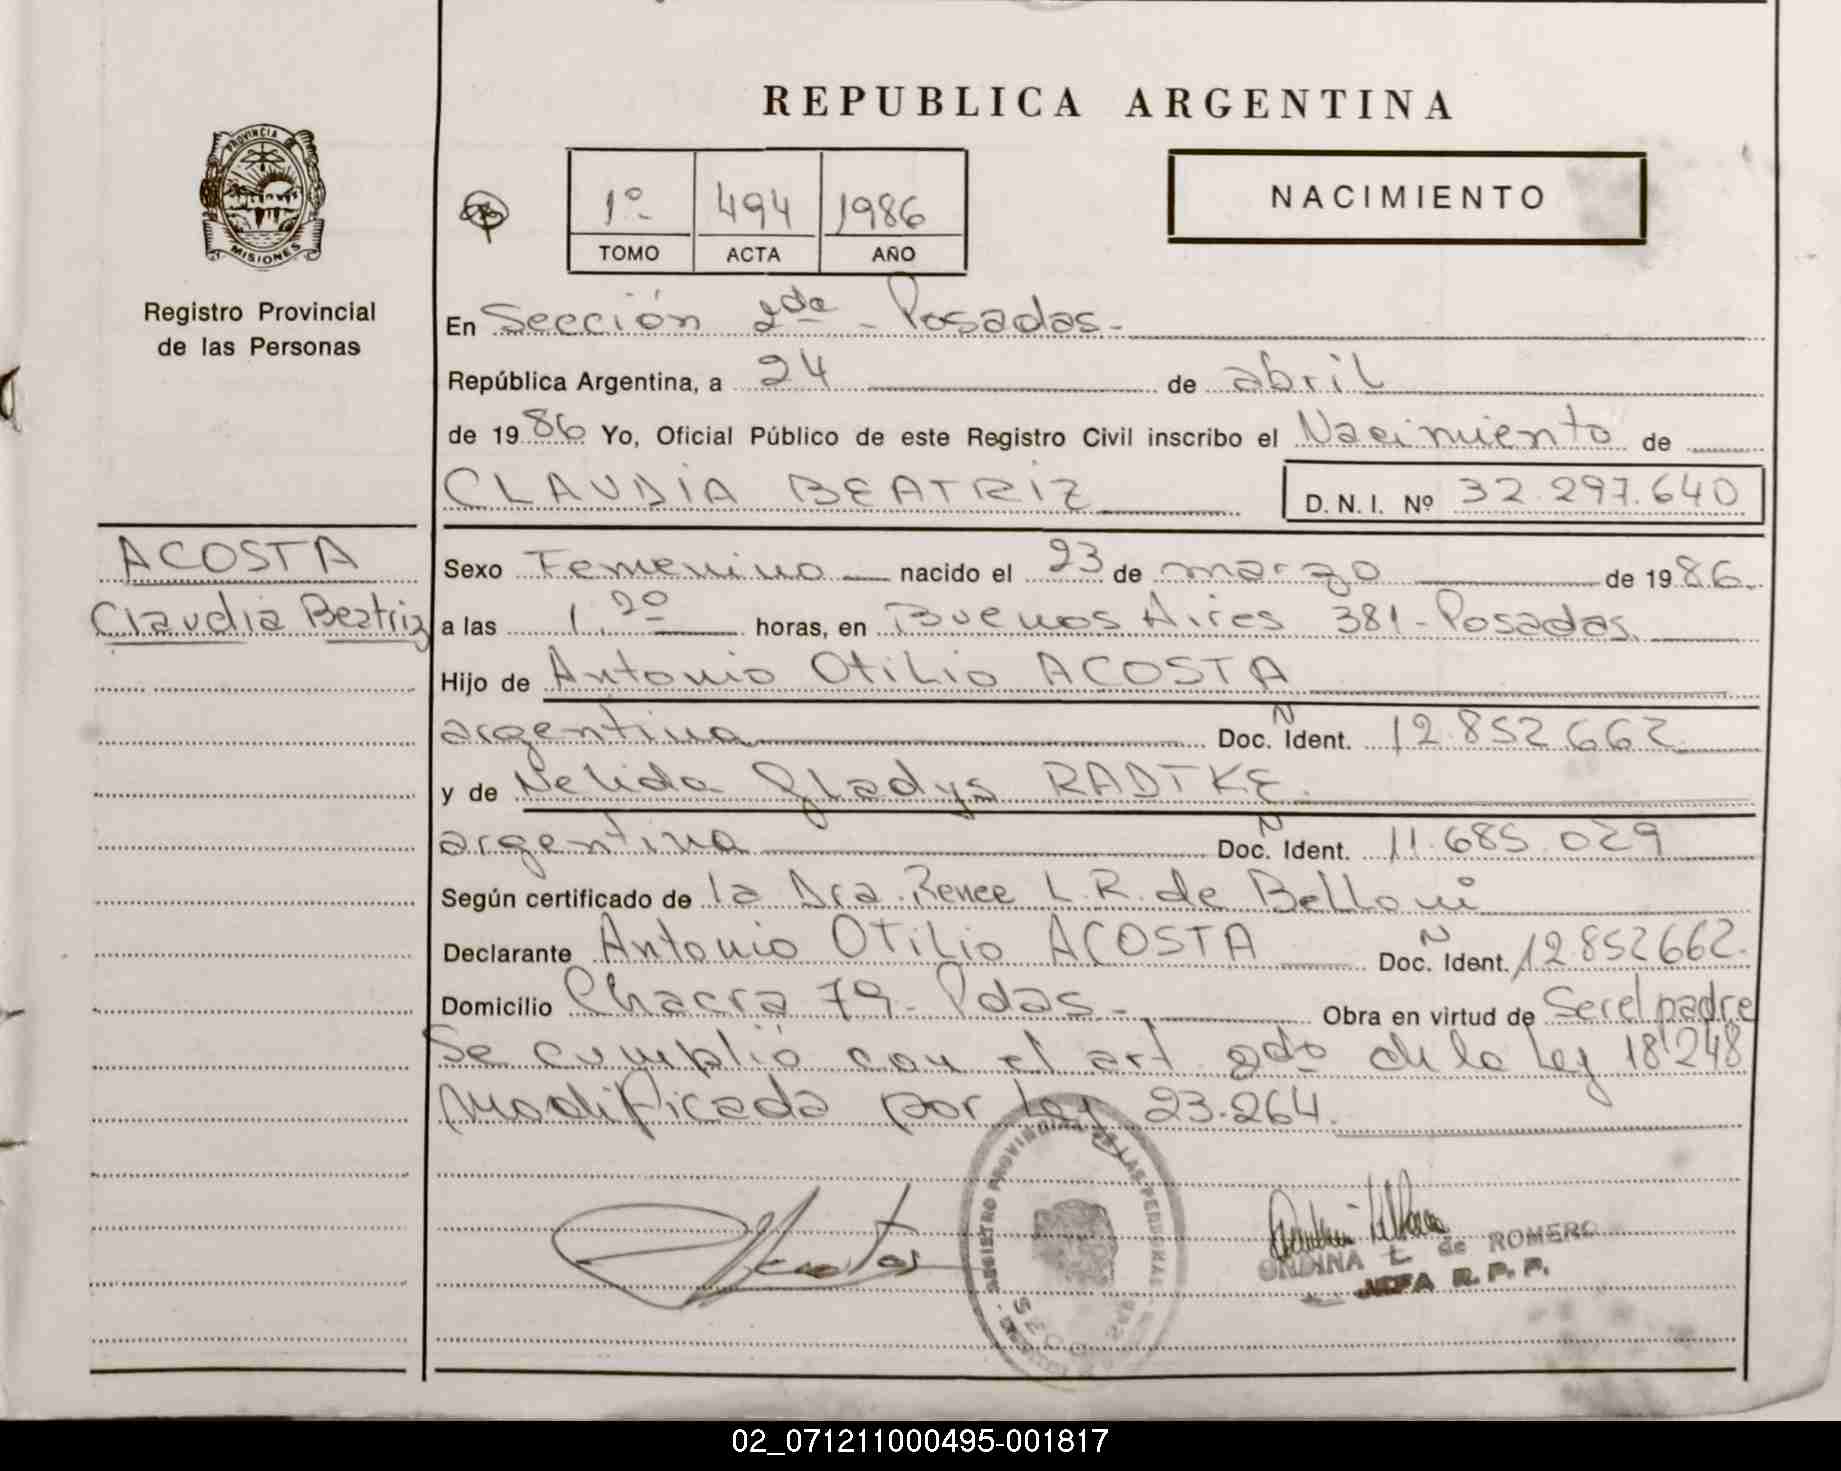 REPUBLICA ARGENTINA
PROVINCIA DE
MISIONES
Registro Provincial
de las Personas
1º 494 1986
TOMO ACTA AÑO
NACIMIENTO
En Sección 2da - Posadas.
República Argentina, a 24 de abril
de 1986 Yo, Oficial Público de este Registro Civil inscribo el Nacimiento de
CLAUDIA BEATRIZ D. N. I. Nº 32.297.640
ACOSTA
Claudia Beatriz
Sexo Femenino nacido el 23 de marzo de 1986.
a las 1.20 horas, en Buenos Aires 381 - Posadas.
Hijo de Antonio Otilio ACOSTA
argentina Doc. Ñ Ident. 12.852.662
y de Nelida Gladys RADTKE.
argentina Doc. Ñ Ident. 11.685.029
Según certificado de la Dra. Renee L. R. de Belloni
Declarante Antonio OTiLio ACOSTA Doc. Ñ Ident. 12.852662.
Domicilio Chacra 79 - Pdas. - Obra en virtud de Ser el padre
Se cumplió con el art 2do de la Ley 18.248
modificada por Ley 23.264.
REGISTRO PROVINCIAL DE LAS PERSONAS
ONDINA E. de ROMERO
JEFA R. P. P.
02_071211000495-001817